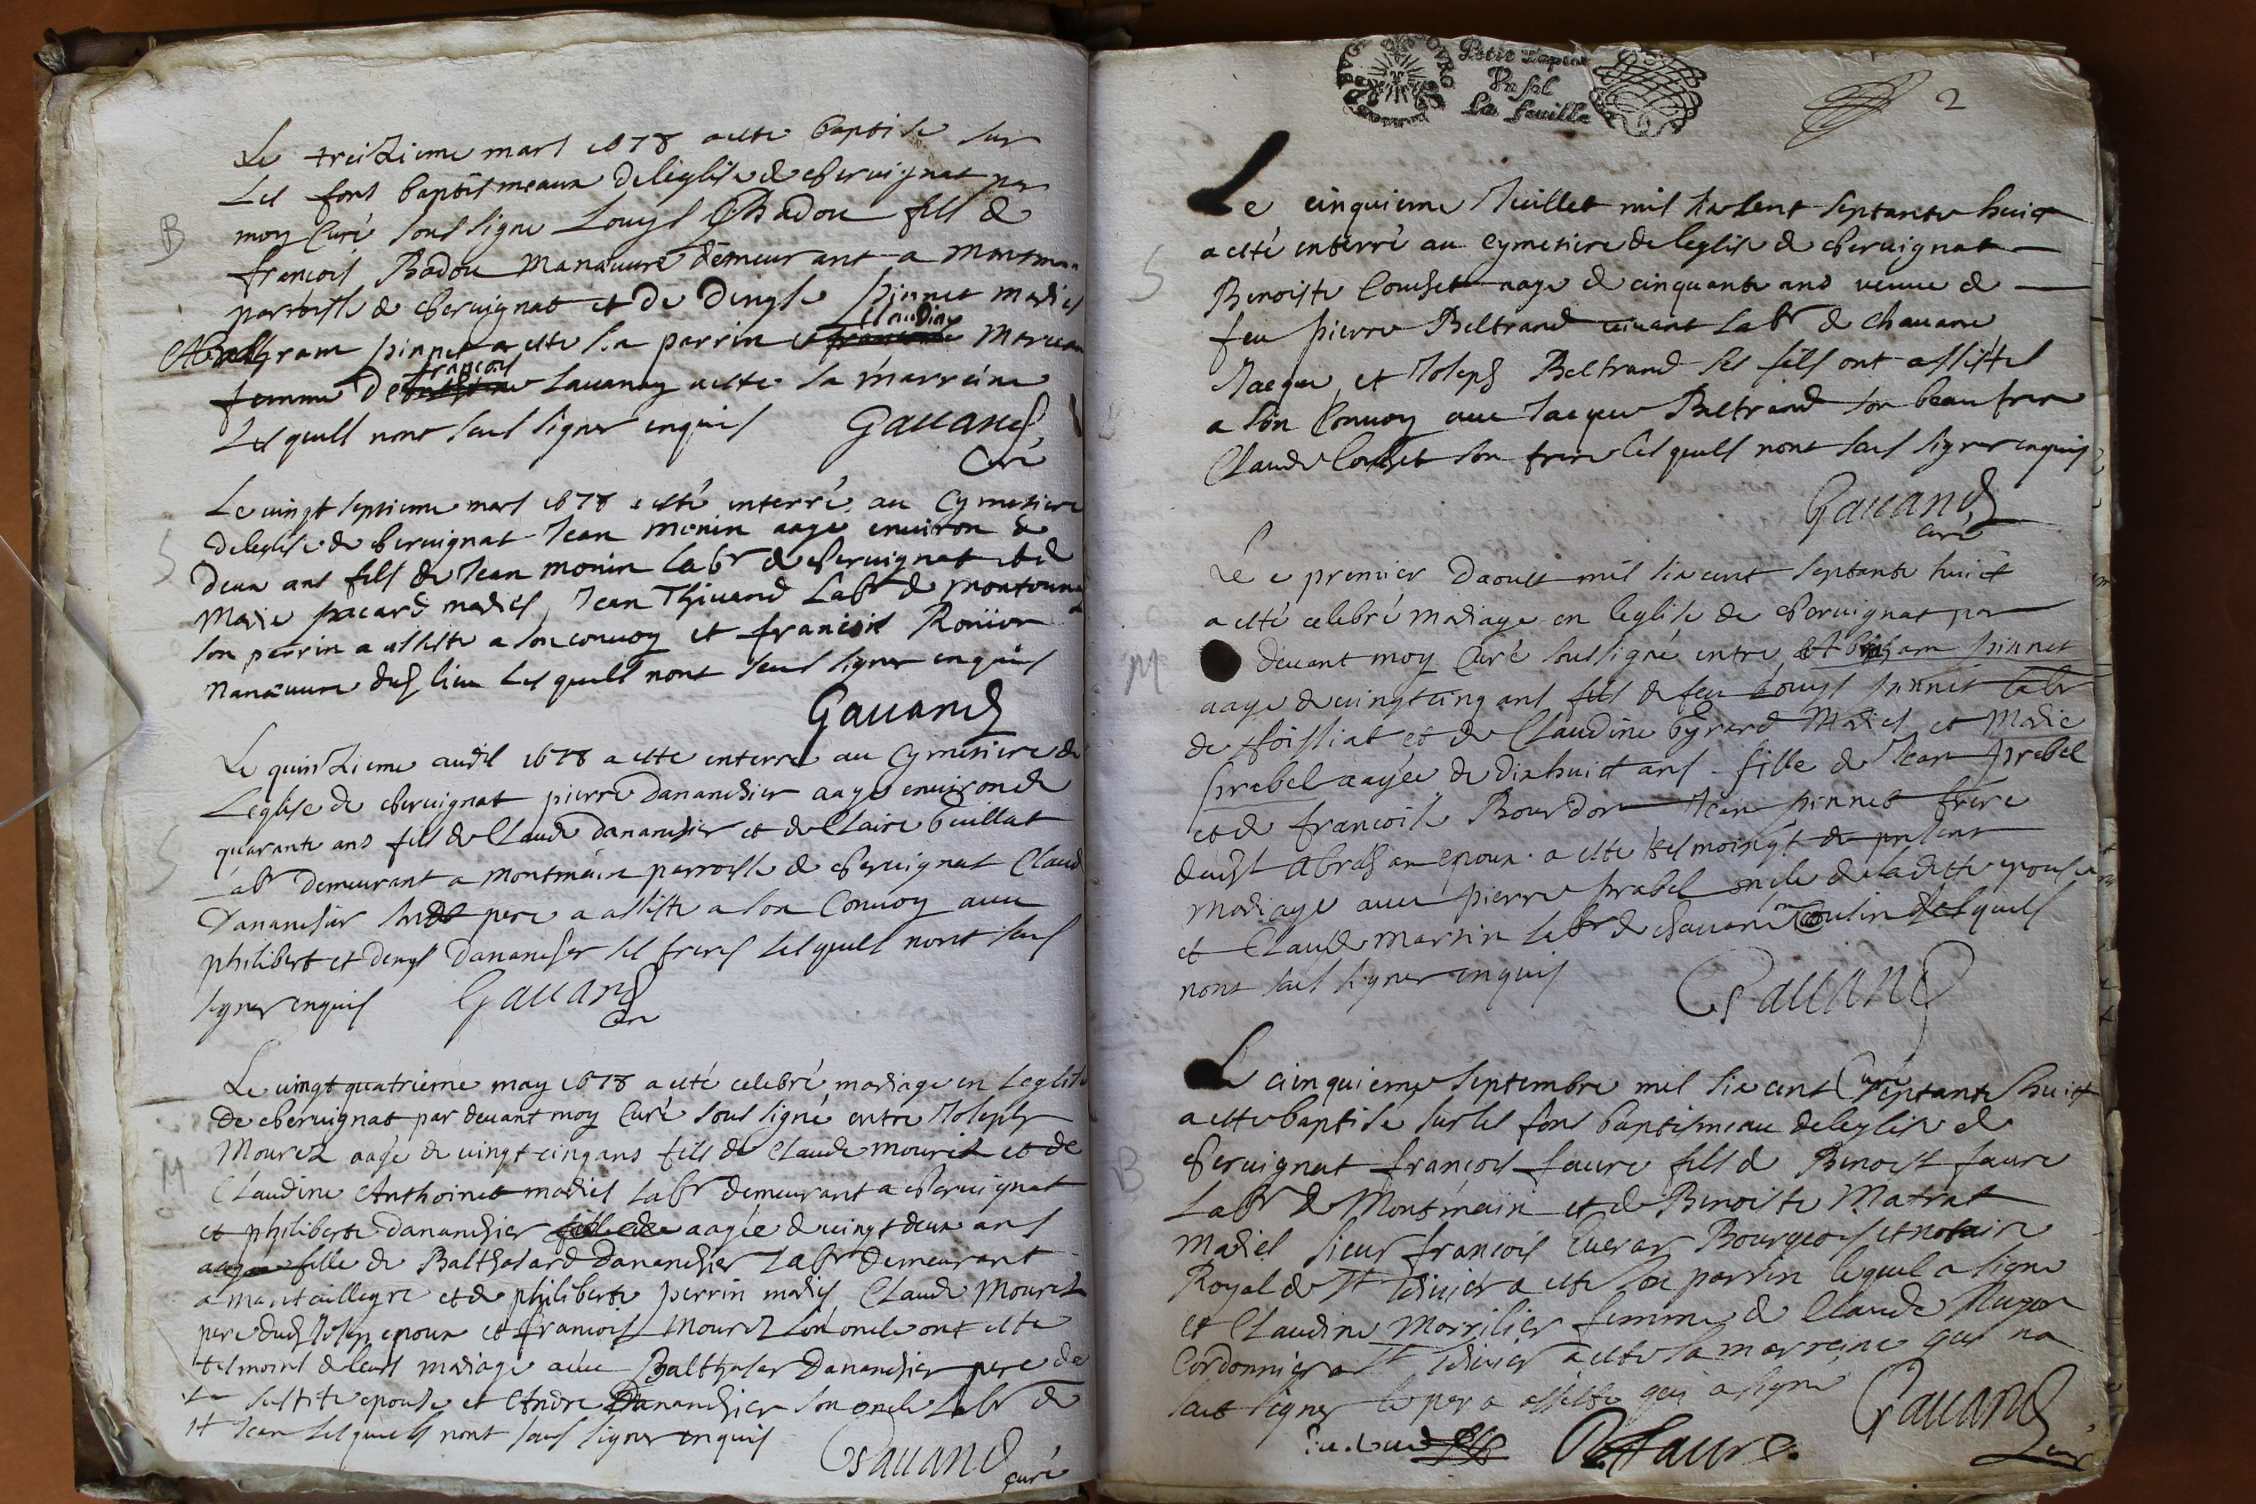 Le treizieme mars 1678 a este baptisé sur
les fons baptismeaux de leglise de chevignat par
B
moy Curé soussigne Louys Badou fils de
francois Badou Manœuvre demeurant a montmein
parroisse de chevignat et de Denyse pinnet mariés
Abraham pinnet a este son parrin et Claudine Moreau
femme de francois Lavanoy a este sa marreine
Lesquels nont seus signer enquis Gavand
Curé
Le vingt septieme mars 1678 a esté interré au Cymetiere
de leglise de chevignat Jean monin aage environ de
S
deux ans fils de Jean monin labr de chevignat et de
Marie pacard mariés, Jean Thivend Labr de
son parrin a assiste a son convoy et francois
manœuvre dud lieu Lesquels nont seus signer enquis
Gavand
Le quinzieme avril 1678 a este enterré au Cymetiere de
Leglise de chevignat pierre Dananchier aage environ de
quarante ans fils de Claude Dananchier et de Claire
S
Labr Demeurant a montmein parroisse de chevignat Claude
Dananchier son pere a assiste a son Convoy avec
philibert et denys Dananchier ses freres lesquels nont seus
signer enquis Gavand
Curé
Le vingt quatrieme may 1678 a esté celebré mariage en Leglise
de chevignat par devant moy Curé soussigné entre Joseph
Mourez aagé de vingt cinq ans fils de Claude mourez et de
M
Claudine Anthoinet mariés labr demeurant a chevignat
et philiberte Dananchier fille de aagée de vingt deux ans
aagee fille de Balthasard Dananchier Labr demeurant
a et de philiberte perrin mariés Claude Mourez
pere dud Joseph epoux et francois Mourez son oncle ont este
tesmoins de leurs mariage avec Balthasar Dananchier pere de
la epouse et Andre Dananchier son oncle Labr de
st Jean Lesquels nont seus signer enquis
Gavand
curé
Petit Papier
La feuille
2
Le cinquieme Juillet mil six cent septante huict
a esté enterré au cymetiere de leglise de chevignat
S
Benoiste Couchet aage de cinquante ans veuve de
feu pierre Beltrand vivant Labr de chavane
Jaeque et Joseph Beltrand ses fils ont assistés
a son Convoy avec Jacque Beltrand son beau frere
Claude Couchet son frere lesquels nont seus signer enquis
Gavand
curé
Le premier Daoust mil six cent septante huict
a esté celebré mariage en leglise de chevignat par
M
devant moy Curé soussigné entre Abraham pinnet
aage de vingt cinq ans fils de feu Louys pinnet labr
de foissiat et de Claudine mariés et Marie
prebel aagée de dix huict ans fille de Jean prebel
et de francoise Bourdon Jean pinnet frere
dudst Abraham epoux a este tesmoingt du present
mariage avec pierre prabel oncle de ladite epouse
et Claude martin labr de chavane cousin Lesquels
nont seus signer enquis Gavand
Curé
Le cinquieme septembre mil six cent septante huict
a este baptisé sur les fons baptismeau de leglise de
B
chevignat francois faure fils de Benoist faure
Labr de Montmein et de Benoiste Matrat
mariés sieur francois Bourgeois et notaire
Royal de st a este son parrin lequel a signe
et Claudine Morrilier femme de Claude
Cordonnier a st a este sa marreine qui na
seus signer le pere a assiste qui a signé
Gavand
Curé
B faure